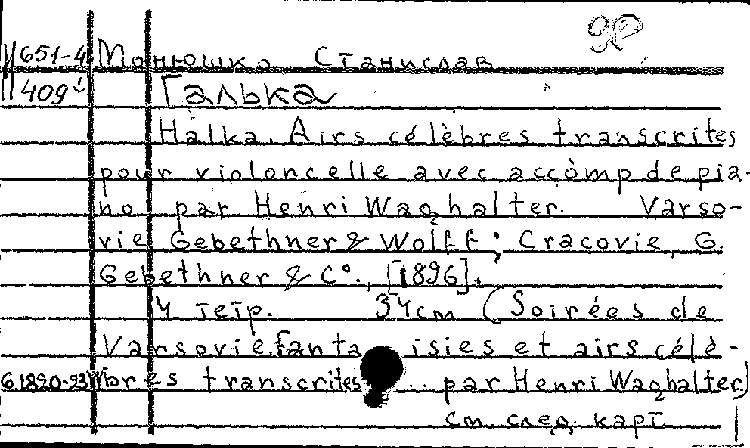 651-4 Монюшко Станислав
409
Галька
Halka. Airs célèbres transcrites
pour violoncelle avec accomp de pia-
no par Henri Waghalter. Varso-
vie Gebethner & Wolff; Cracovie, G.
Gebethner & C°., [1896].
4 тетр. 34cm (Soirées de
Varsovie. fanta isies et airs célè-
bres transcrites ... par Henri Waghalter)
см. след. карт.